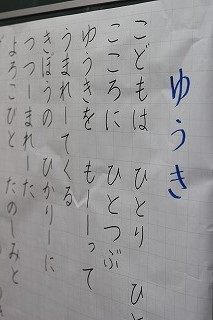 ゆうき
こどもは ひとり ひと
こころに ひとつぶ
ゆうきを もーーって
うまれーてくる
きぼうの ひかりーに
つつーまれーた
よろこびと たのしみと